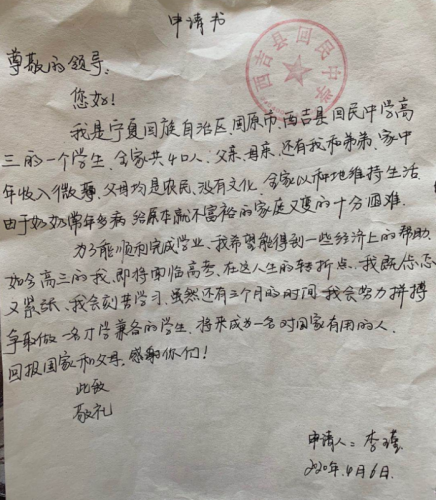 申请书
西吉县回民中学
尊敬的领导:
您好!
我是宁夏回族自治区固原市、西吉县回民中学高
三的一个学生、全家共4口人、父亲、母亲、还有我和弟弟、家中
年收入微薄、父母均是农民、没有文化、全家以种地维持生活、
由于奶奶常年多病给原本就不富裕的家庭又变的十分困难.
为了能顺利完成学业、我希望能得到一些经济上的帮助、
如今高三的我、即将面临高考、在这人生的转折点、我既忐忑
又紧张、我会刻苦学习、虽然还有三个月的时间、我会努力拼搏
争取做一名才学兼备的学生、将来成为一名对国家有用的人、
回报国家和父母、感谢你们!
此致
敬礼
申请人:李
2020年.4月6日.